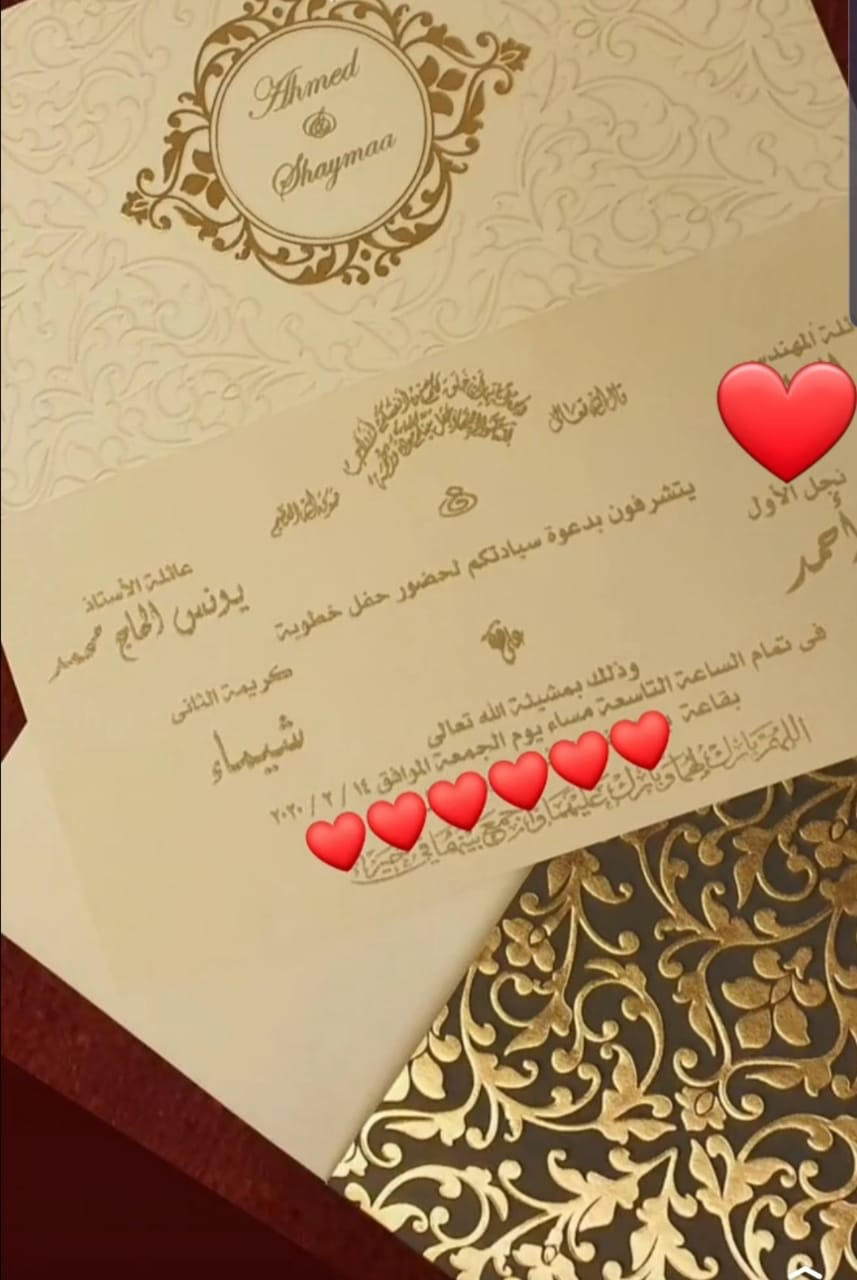 Ahmed
&
Shaymaa
عائلة المهندس
قال الله تعالى
صدق الله العظيم
عائلة الأستاذ
يونس الحاج محمد
نجل الأول
أحمد
يتشرفون بدعوة سيادتكم لحضور حفل خطوبة
كريمة الثانى
شيماء
على
وذلك بمشيئة الله تعالى
فى تمام الساعة التاسعة مساء يوم الجمعة الموافق ١٤ / ٢ / ٢٠٢٠
بقاعة
اللهم بارك لهما وبارك عليهما واجمع بينهما في خير